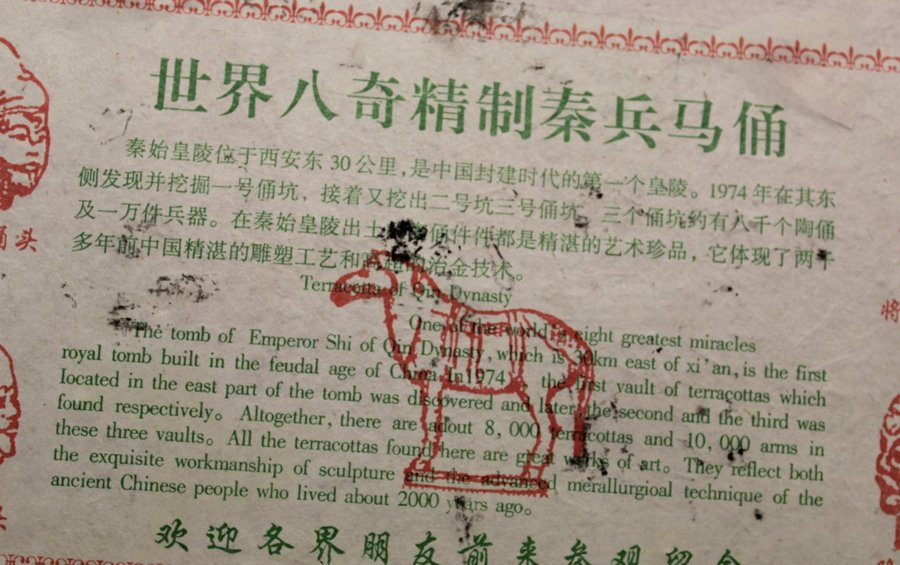 世界八奇精制秦兵马俑
秦始皇陵位于西安东30公里,是中国封建时代的第一个皇陵。1974年在其东
侧发现并挖掘一号俑坑,接着又挖出二号坑三号俑坑。三个俑坑约有八千个陶俑
及一万件兵器。在秦始皇陵出土 俑件件都是精湛的艺术珍品,它体现了两千
多年前中国精湛的雕塑工艺和 冶金技术。
Terracotta of Qin Dynasty
One of the world is eight greatest miracles
The tomb of Emperor Shi of Qin Dynasty,which is 30km east of xi'an,is the first
royal tomb built in the feudal age of China In1974, the first vault of terracottas which
located in the east part of the tomb was discovered and later the second and the third was
found respectively。Altogether, there are adout 8,000 terracottas and 10,000 arms in
these three vaults。All the terracottas found here are great works of art。They reflect both
the exquisite workmanship of sculpture and the advanced merallurgioal technique of the
ancient Chinese people who lived about 2000 years ago。
欢迎各界朋友前来参观留念
俑头
将